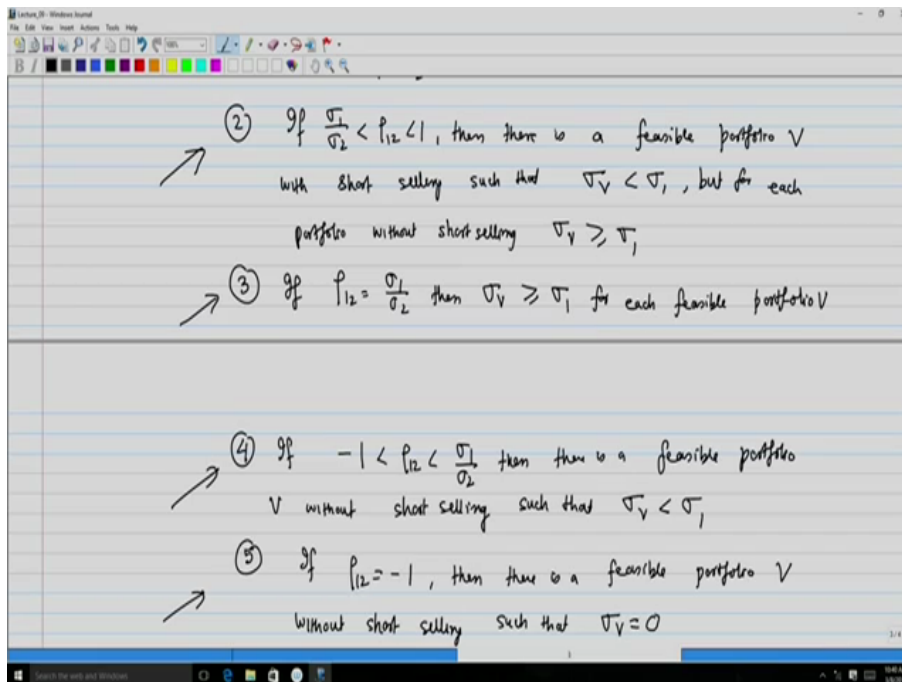 Lecture_09 - Windows Journal
File Edit View Insert Actions Tools Help
② If σ₁/σ₂ < ρ₁₂ < 1, then there is a feasible portfolio V
with short selling such that σ_V < σ₁, but for each
portfolio without short selling σ_V ≥ σ₁
③ If ρ₁₂ = σ₁/σ₂ then σ_V ≥ σ₁ for each feasible portfolio V
④ If -1 < ρ₁₂ < σ₁/σ₂ then there is a feasible portfolio
V without short selling such that σ_V < σ₁
⑤ If ρ₁₂ = -1, then there is a feasible portfolio V
without short selling such that σ_V = 0
Search the web and Windows